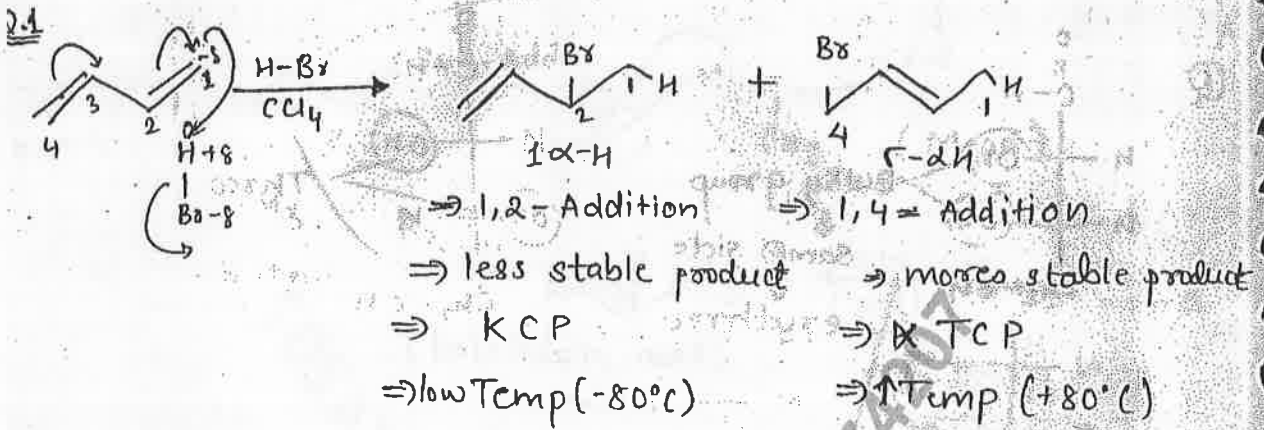 Q.1
H-Br
CCl4
4 3 2 1 -δ
H+δ
Br-δ
Br
H
1 2
1α-H
+
Br
H
4 1
5-αH
⇒ 1,2-Addition ⇒ 1,4-Addition
⇒ less stable product ⇒ mores stable product
⇒ KCP ⇒ TCP
⇒ low Temp (-80°C) ⇒ ↑Temp (+80°C)